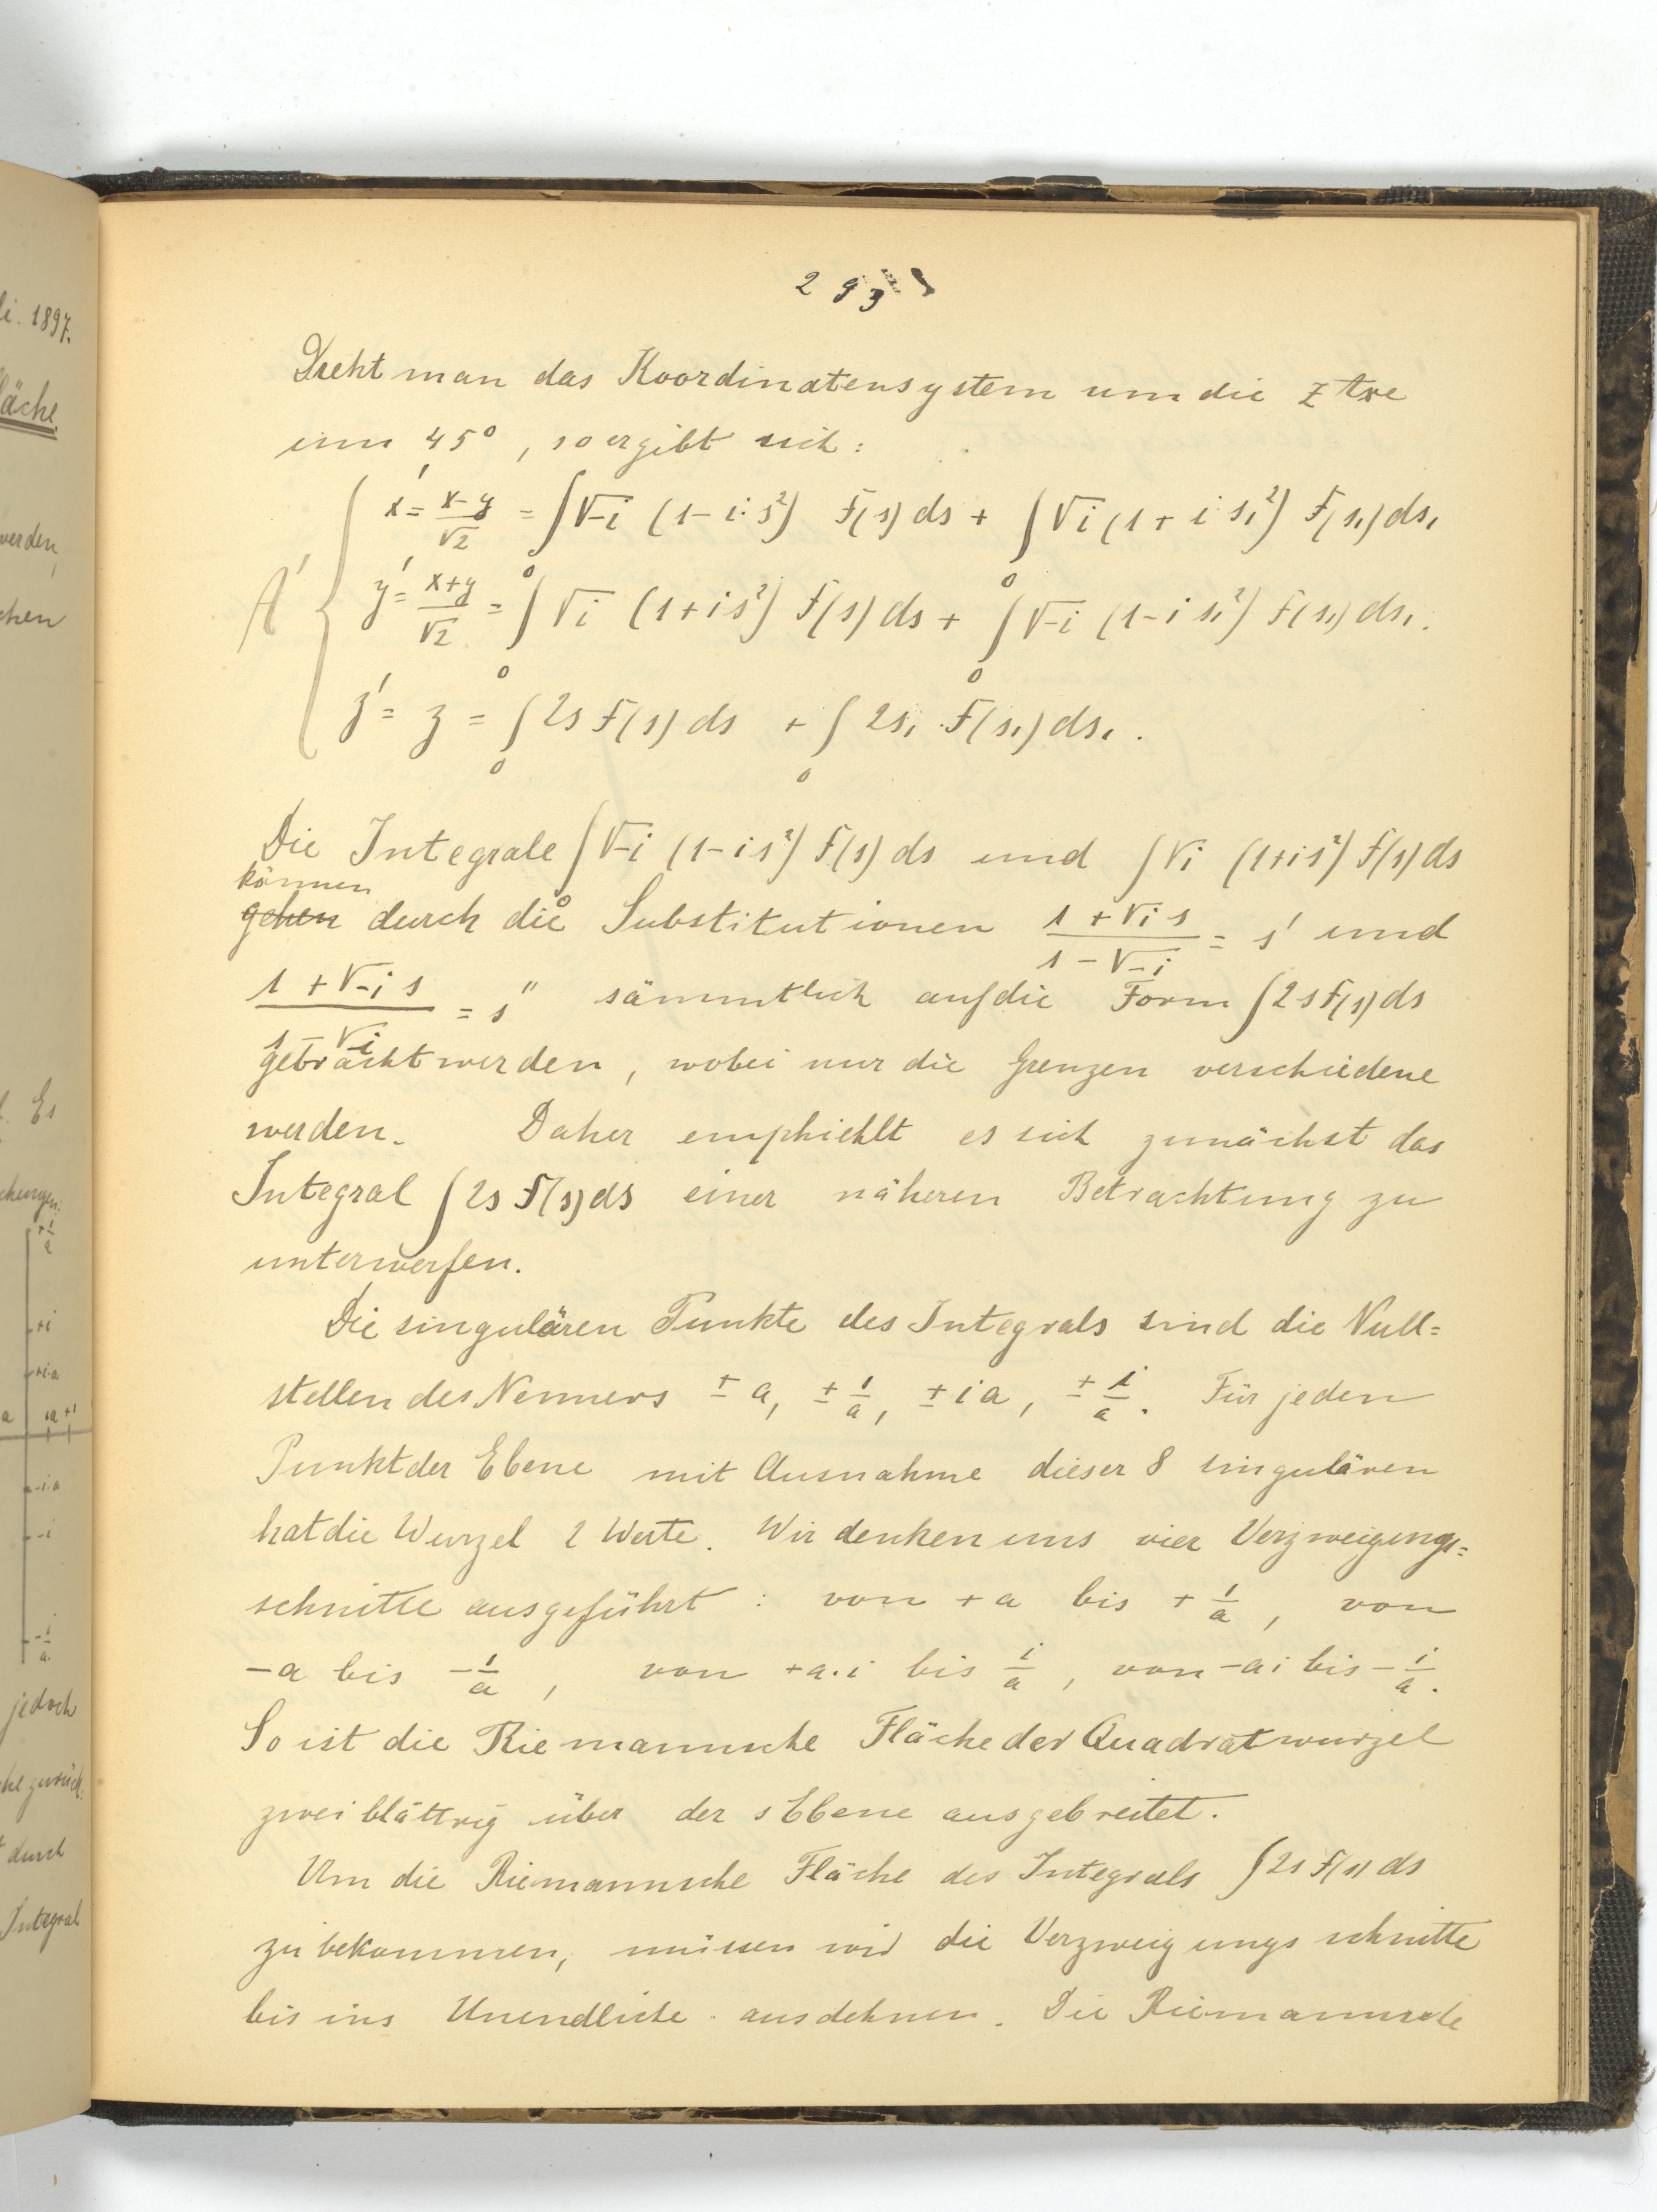 li. 1897.
läche.
werden,
chen
l. Es
chungen:
+1/a
+i
+i·a
a ia +1
-i·a
-i
-i/a.
jedoch
che zurück:
durch
Integral
293
Dreht man das Koordinatensystem um die z Axe
um 45°, so ergibt sich:
A' { x' = (x-y)/√2 = ∫₀ √-i (1-i·s²) F(s) ds + ∫₀ √i (1+i s₁²) F(s₁) ds₁
y' = (x+y)/√2 = ∫₀ √i (1+is²) F(s) ds + ∫₀ √-i (1-i s₁²) F(s₁) ds₁.
z' = z = ∫₀ 2s F(s) ds + ∫₀ 2s₁ F(s₁) ds₁.
Die Integrale ∫₀ √-i (1-is²) F(s) ds und ∫ √i (1+is²) F(s) ds
können
gehen durch die Substitutionen (1+√i s)/(1-√-i) = s' und
(1+√-i s)/(1-√i) = s" sämmtlich auf die Form ∫2sF(s)ds
gebracht werden, wobei nur die Grenzen verschiedene
werden. Daher emphiehlt es sich zunächst das
Integral ∫2s F(s) ds einer näheren Betrachtung zu
unterwerfen.
Die singulären Punkte des Integrals sind die Null=
stellen des Nenners ± a, ± 1/a, ± i a, ± i/a. Für jeden
Punkt der Ebene mit Ausnahme dieser 8 singulären
hat die Wurzel 2 Werte. Wir denken uns vier Verzweigungs=
schnitte ausgeführt: von +a bis + 1/a, von
-a bis -1/a, von +a·i bis i/a, von -ai bis -i/a.
So ist die Riemannsche Fläche der Quadratwurzel
zweiblättrig über der s Ebene ausgebreitet.
Um die Riemannsche Fläche des Integrals ∫2s F(s) ds
zu bekommen, müssen wir die Verzweigungsschnitte
bis ins Unendliche ausdehnen. Die Riemannsche